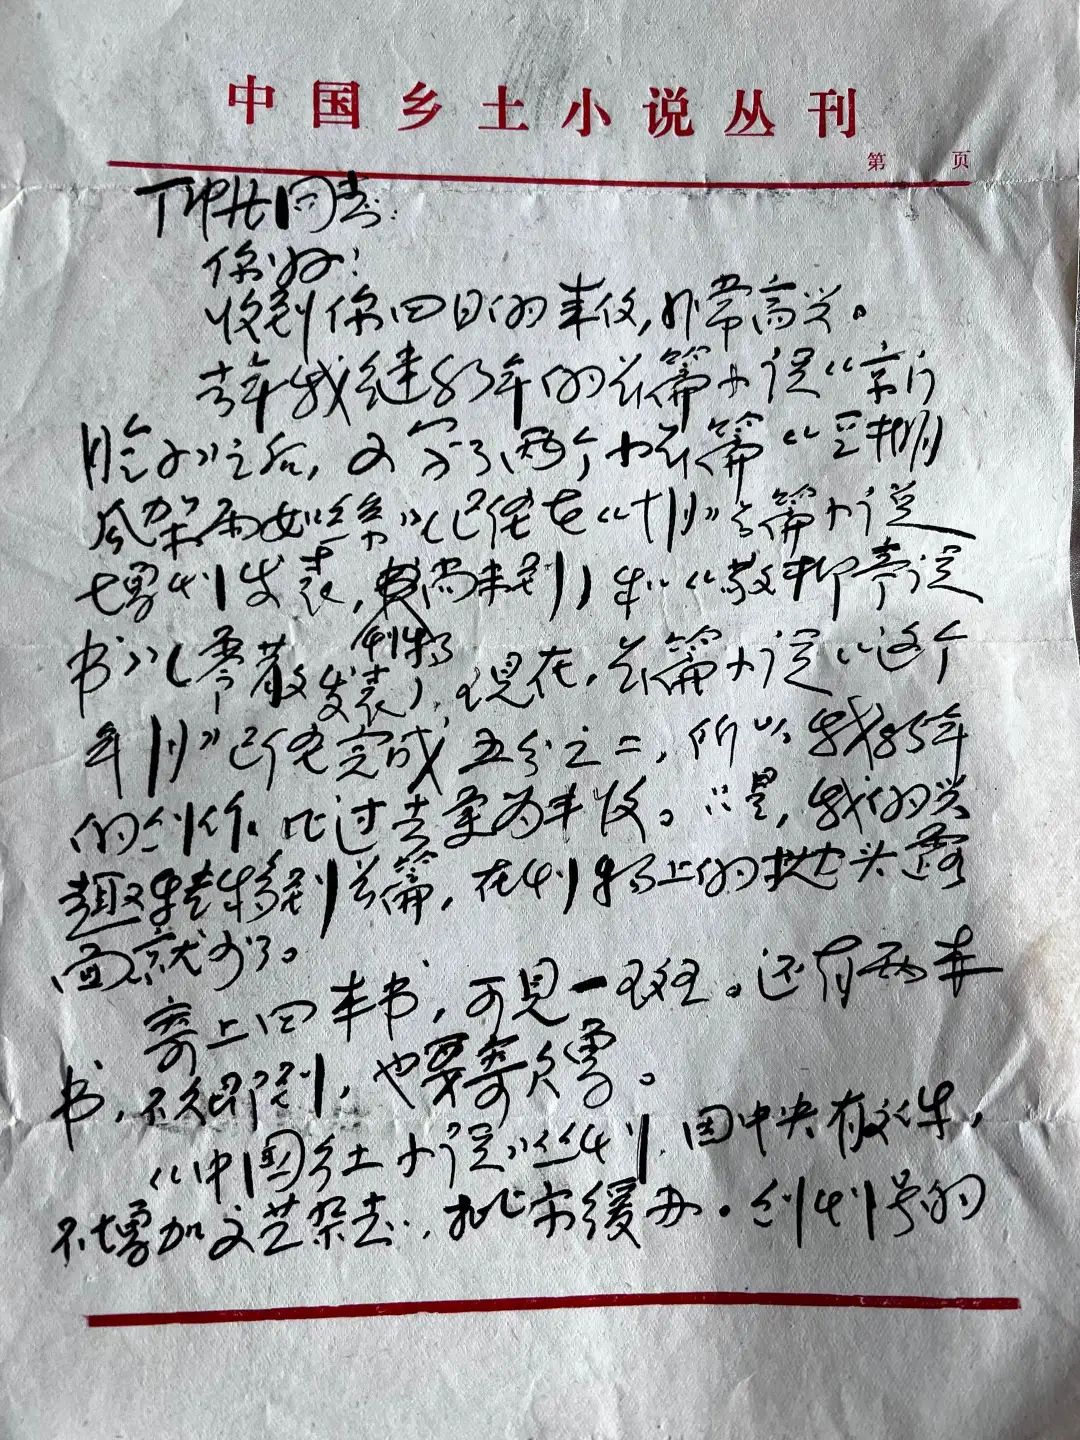 中国乡土小说丛刊
第 页
同志：
你好！
收到你四日的来信，非常高兴。
去年我继83年的长篇小说《京门
脸子》之后，又写了两个小长篇《豆棚瓜
架雨如丝》（已经在《十月》长篇小说
增刊发表，书尚未到）和《敬柳亭说
书》（零散刊物发表），现在，长篇小说《这个
年月》已经完成五分之二，所以我85年
的创作，比过去更为丰收。只是，我的兴
趣转移到长篇，在刊物上的抛头露
面就少了。
寄上四本书，可见一斑。还有两本
书，不久即到，也要寄久勇。
《中国乡土小说》丛刊，因中央有文件，
不增加文艺杂志，批示缓办。创刊号的